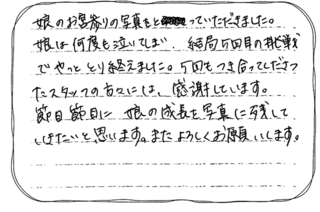 娘のお宮参りの写真をとっていただきました。
娘は何度も泣いてしまい 結局5回目の挑戦
でやっととり終えました。5回もつき合ってくださっ
たスタッフの方々には、感謝しています。
節目節目に 娘の成長を写真に残して
いきたいと思います。またよろしくお願いします。